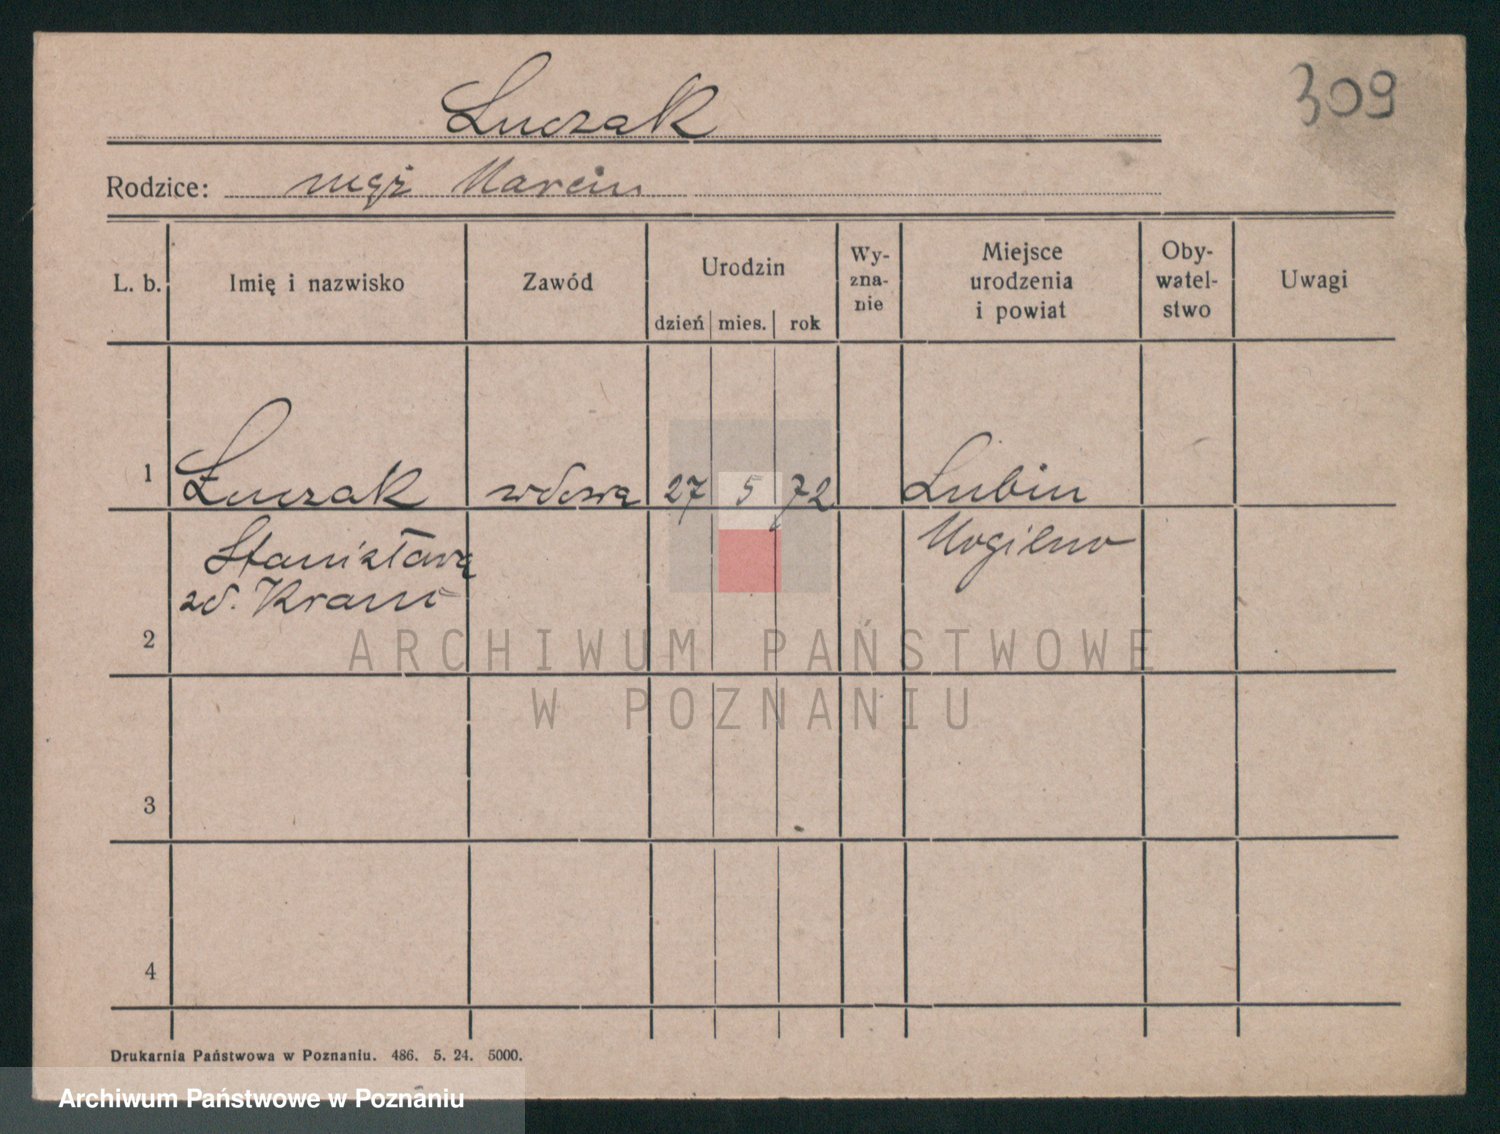 309
Łuczak
Rodzice: mąż Marcin
L. b. Imię i nazwisko Zawód Urodzin dzień mies. rok Wy-zna-nie Miejsce urodzenia i powiat Oby-watel-stwo Uwagi
1 Łuczak wdowa 27 5 72 Lubin
Stanisława Mogilno
zd.
2
3
4
Drukarnia Państwowa w Poznaniu. 486. 5. 24. 5000.
ARCHIWUM PAŃSTWOWE
W POZNANIU
Archiwum Państwowe w Poznaniu